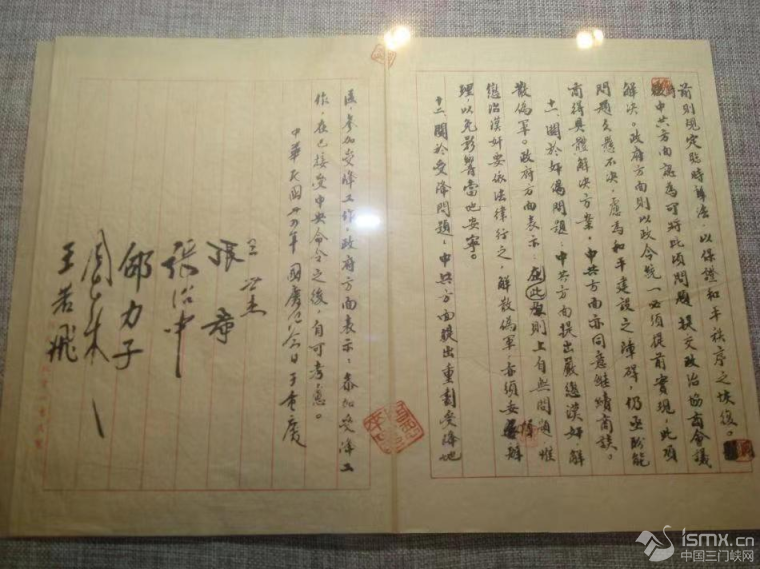 前則規定臨時辦法，以保證和平秩序之恢復。
中共方面認為可將此項問題，提交政治協商會議
解決。政府方面則以政令統一必須提前實現，此項
問題久懸不決，應為和平建設之障碍，仍亟盼能
商得具體解決方案，中共方面亦同意繼續商談。
十一、關於奸偽問題：中共方面提出嚴懲漢奸，解
散偽軍。政府方面表示：此在原則上自無問題，惟
懲治漢奸要依法律行之，解散偽軍，亦須妥慎辦
理，以免影響當地安寧。
十二、關於受降問題：中共方面提出重劃受降地
區，參加受降工作，政府方面表示，參加受降工
作，在已接受中央命令之後，自可考慮。
中華民國卅四年國慶紀念日于重慶
王世杰
張羣
張治中
邵力子
周恩來
王若飛
ismx.cn
中国三门峡网